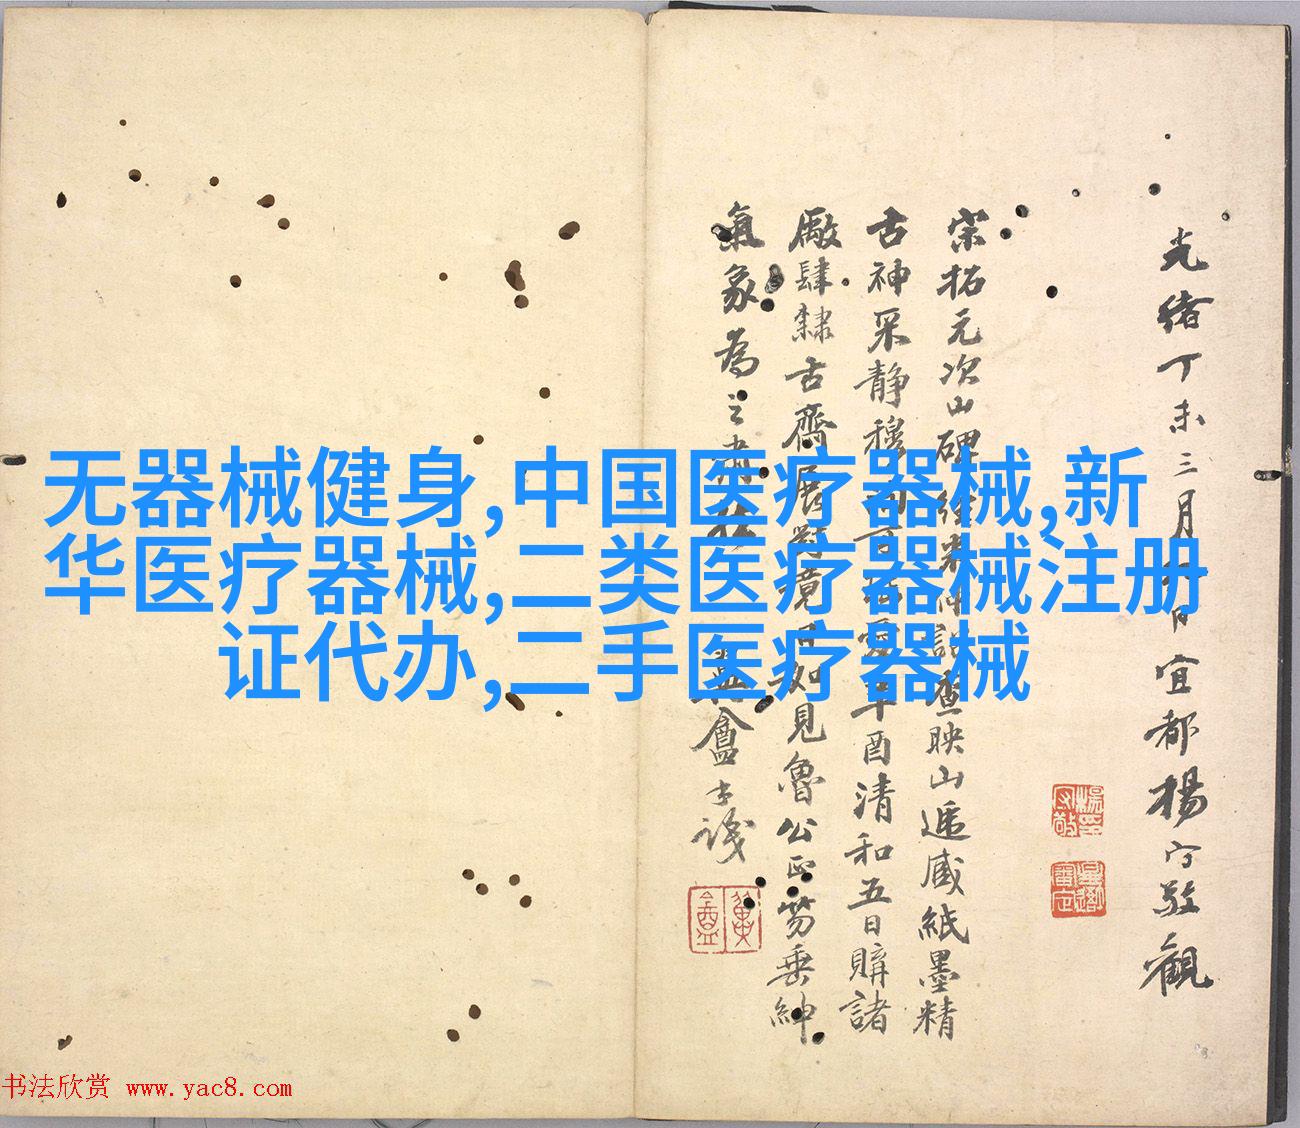 无器械健身,中国医疗器械,新
华医疗器械,二类医疗器械注册
证代办,二手医疗器械
光绪丁未三月 日宜都楊守敬觀
宋拓元次山碑 徐 映山遞臧紙墨精
古神采静穆 辛酉清和五日購諸
厰肆隸古齋展對 竟日如見魯公正笏垂紳
氣象為之肅 盦士 識
书法欣赏 www.yac8.com